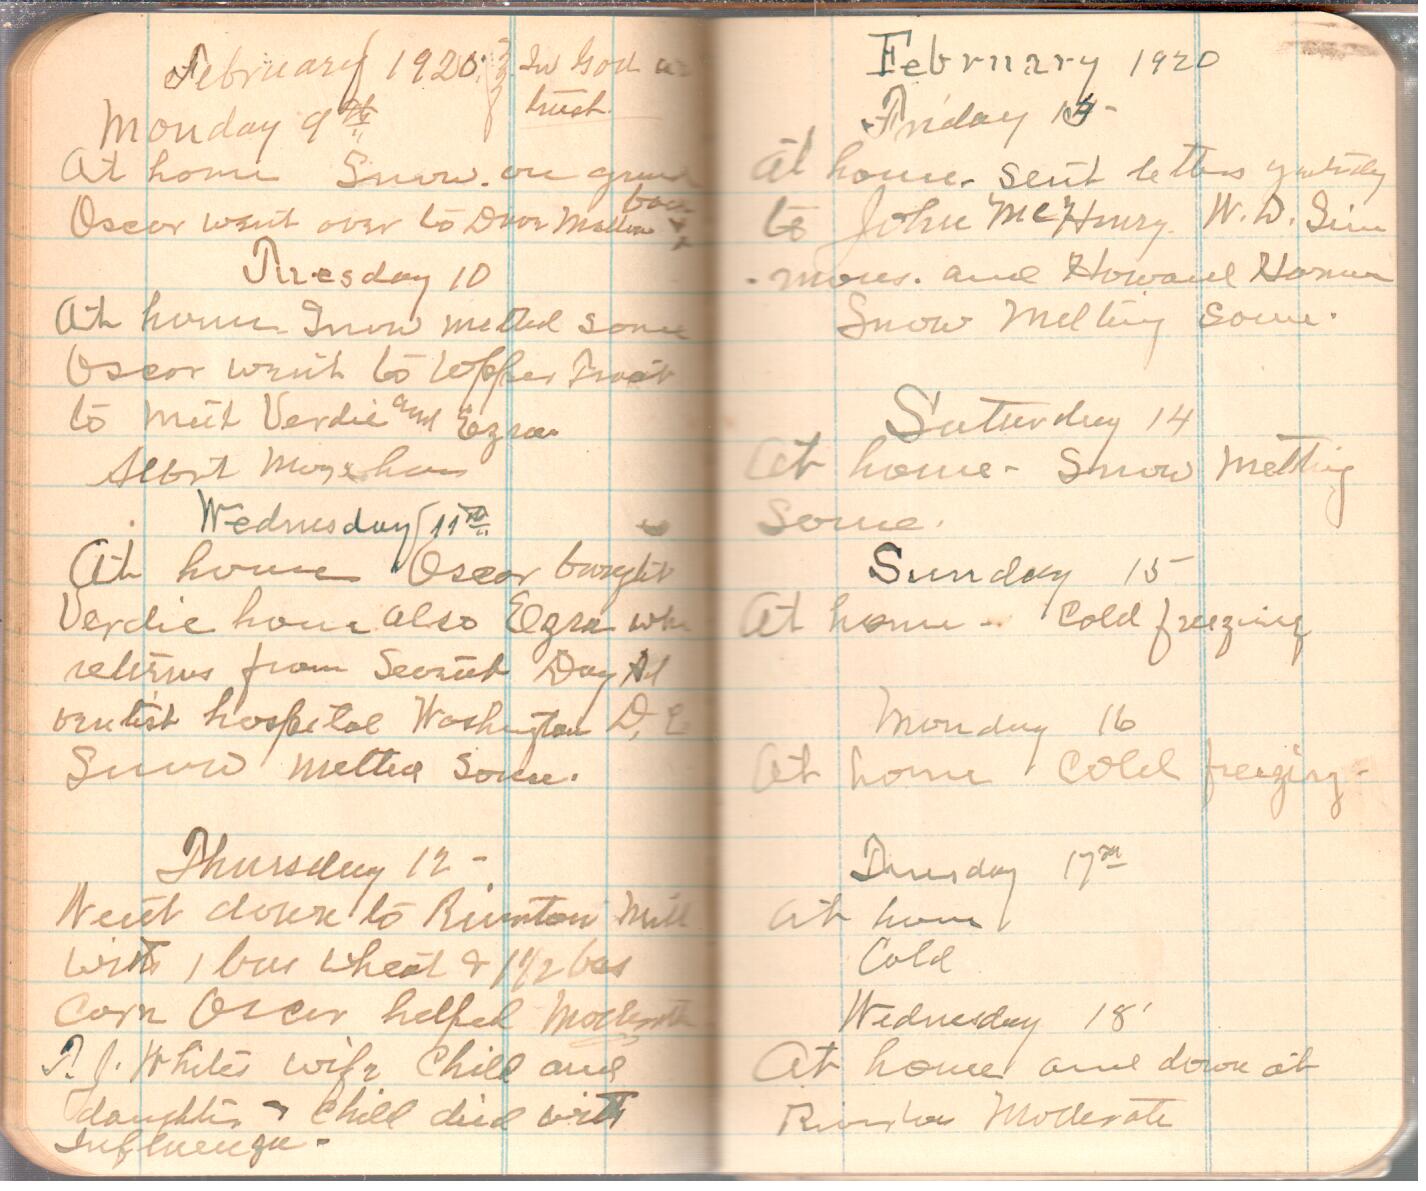 February 1920 In God we
trust
Monday 9th
At home Snow. on ground
Oscar went over to Dave
Tuesday 10
At home Snow melted some
Oscar went to Upper Tract
to meet Verdie and Ezra
Albert
Wednesday 11th
At home Oscar bought
Verdie home also Ezra who
returns from Day Ad
ventist hospital Washington D. C
Snow melted some.
Thursday 12 -
Went down to Mill
with 1 bus wheat & 1 1/2 bus
Corn Oscar helped Moderate
T. J. Whites wife Child and
daughter & Child died with
Influenza -
February 1920
Friday 13 -
At home. sent letters yesterday
to John McHenry. W. D. Sim
-mons. and Howard
Snow Melting some.
Saturday 14
At home - Snow Melting
Some.
Sunday 15
At home - Cold freezing
Monday 16
At home Cold freezing -
Tuesday 17th
At home
Cold
Wednesday 18
At home and down at
Moderate